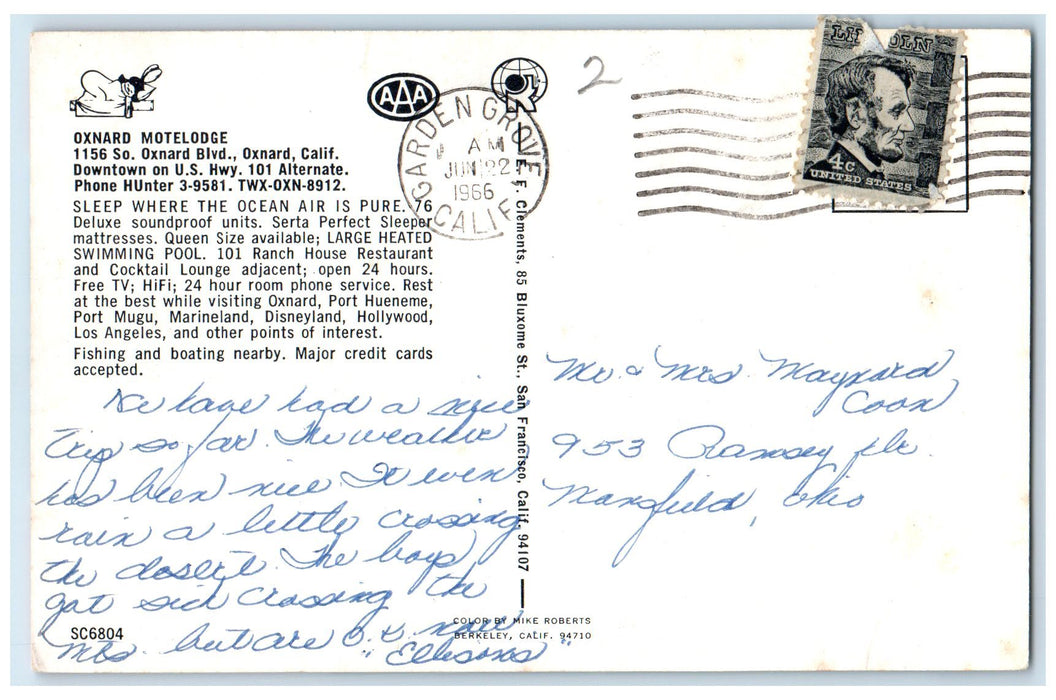 OXNARD MOTELODGE
1156 So. Oxnard Blvd., Oxnard, Calif.
Downtown on U.S. Hwy. 101 Alternate.
Phone HUnter 3-9581. TWX-OXN-8912.
SLEEP WHERE THE OCEAN AIR IS PURE. 76
Deluxe soundproof units. Serta Perfect Sleeper
mattresses. Queen Size available; LARGE HEATED
SWIMMING POOL. 101 Ranch House Restaurant
and Cocktail Lounge adjacent; open 24 hours.
Free TV; HiFi; 24 hour room phone service. Rest
at the best while visiting Oxnard, Port Hueneme,
Port Mugu, Marineland, Disneyland, Hollywood,
Los Angeles, and other points of interest.
Fishing and boating nearby. Major credit cards
accepted.
We have had a nice
trip so far. The weather
has been nice It even
rain a little crossing
the desert. The boys
got sick crossing the
mts. but are O.K. now
"Ellisons"
SC6804
AAA
GARDEN GROVE
AM
JUN 22
1966
CALIF
E. F. Clements, 85 Bluxome St., San Francisco, Calif. 94107
COLOR BY MIKE ROBERTS
BERKELEY, CALIF. 94710
2
LINCOLN
4c
UNITED STATES
Mr. & Mrs. Maynard
Coon
953 Ramsey plc.
Mansfield, Ohio